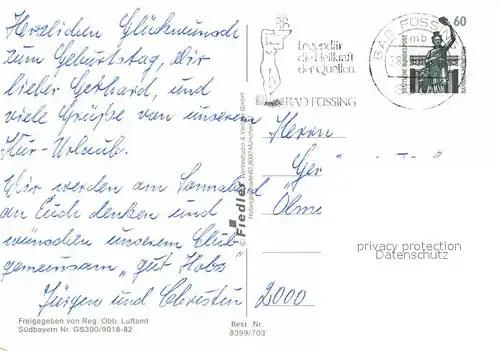 Herzlichen Glückwunsch
zum Geburtstag, Dir
lieber Gerhard, und
viele Grüße von unserem
Kur-Urlaub.
Wir werden am Sonnabend
an Euch denken und
wünschen unserem Club
gemeinsam „gut Holz"
Jürgen und Christin
Freigegeben von Reg. Obb. Luftamt
Südbayern Nr. GS300/9018-82
© Fiedler Werbestudio & Verlag GmbH
8000 München
Best. Nr.
8399/703
Legendär
die Heilkraft
der Quellen.
BAD FÜSSING
BAD FÜSS
mb
60
DEUTSCHE BUNDESPOST
Herrn
Ger
2000
privacy protection
Datenschutz